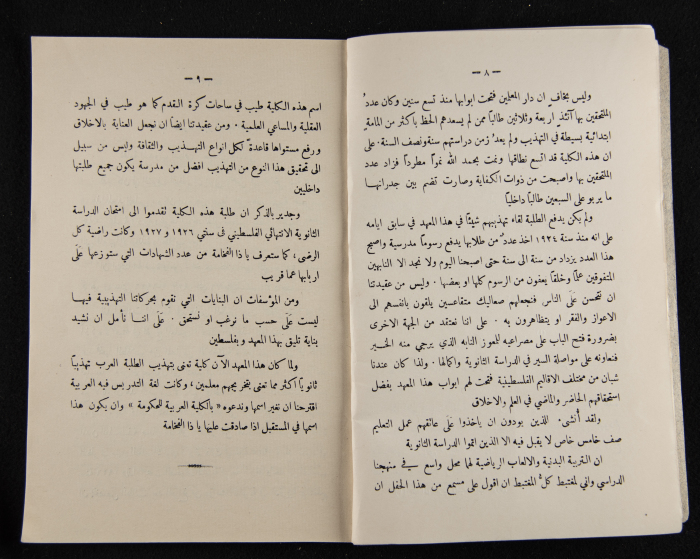 — ٨ —
وليس بخافٍ ان دار المعلمين فتحت ابوابها منذ تسع سنين وكان عددُ
الملتحقين بها آنئذٍ اربعة وثلاثين طالباً ممن لم يسعدهم الحظ باكثر من المامةٍ
ابتدائية بسيطة في التهذيب ولم يعدُ زمن دراستهم سنة ونصف السنة. على
ان هذه الكلية قد اتسع نطاقها ونمت بحمد الله نموّاً مطرداً فزاد عدد
الملتحقين بها واصبحت من ذوات الكفاية وصارت تضم بين جدرانها
ما يربو على السبعين طالباً داخلياً
ولم يكن يدفع الطلبة لقاء تهذيبهم شيئاً في هذا المعهد في سابق ايامه
على انه منذ سنة ١٩٢٤ اخذ عددٌ من طلابها يدفع رسوماً مدرسية واصبح
هذا العدد يزداد من سنة الى سنة حتى اصبحنا اليوم ولا نجد الا النابهين
المتفوقين علماً وخلقاً يعفون من الرسوم كلها او بعضها. وليس من عقيدتنا
ان نمتحن على الناس فنجعلهم صعاليك متقاعسين يلقون بانفسهم الى
الاعواز والفقر او يتظاهرون به. على اننا نعتقد من الجهة الاخرى
بضرورة فتح الباب على مصراعيه للموز النابه الذي يرجى منه الخير
فنعاونه على مواصلة السير في الدراسة الثانوية واكمالها. ولذا كان عندنا
شبان من مختلف الاقاليم الفلسطينية فتحت لهم ابواب هذا المعهد بفضل
استحقاقهم الحاضر والماضي في العلم والاخلاق
ولقد أُنشئ. للذين يودون ان ياخذوا على عاتقهم عمل التعليم
صف خامس خاص لا يقبل فيه الا الذين اتموا الدراسة الثانوية
ان التربية البدنية والالعاب الرياضية لها محل واسع في منهجنا
الدراسي واني لمغتبط كلَّ المغتبط ان اقول على مسمع من هذا الحفل ان
— ٩ —
اسم هذه الكلية طيب في ساحات كرة القدم كما هو طيب في الجهود
العقلية والمساعي العلمية. ومن عقيدتنا ايضاً ان نجعل العناية بالاخلاق
ورفع مستواها قاعدةً لكل انواع التهذيب والثقافة وليس من سبيل
الى تحقيق هذا النوع من التهذيب افضل من مدرسة يكون جميع طلبتها
داخليين
وجدير بالذكر ان طلبة هذه الكلية تقدموا الى امتحان الدراسة
الثانوية الانتهائي الفلسطيني في سنتي ١٩٢٦ و ١٩٢٧ وكانت راضية كل
الرضى، كما ستعرف يا ذا الفخامة من عدد الشهادات التي ستوزعها عَلَى
اربابها عما قريب
ومن المؤسفات ان البنايات التي تقوم بحركاتنا التهذيبية فيها
ليست عَلَى حسب ما نرغب او نستحق. عَلَى اننا نأمل ان نشيد
بناية تليق بهذا المعهد وبفلسطين
ولما كان هذا المعهد الآن كلية تعنى بتهذيب الطلبة العرب تهذيباً
ثانوياً اكثر مما تعنى بتخريجهم معلمين، وكانت لغة التدريس فيه العربية
اقترحنا ان نغير اسمها وندعوه «بالكلية العربية للحكومة» وان يكون هذا
اسمها في المستقبل اذا صادقت عليها يا ذا الفخامة